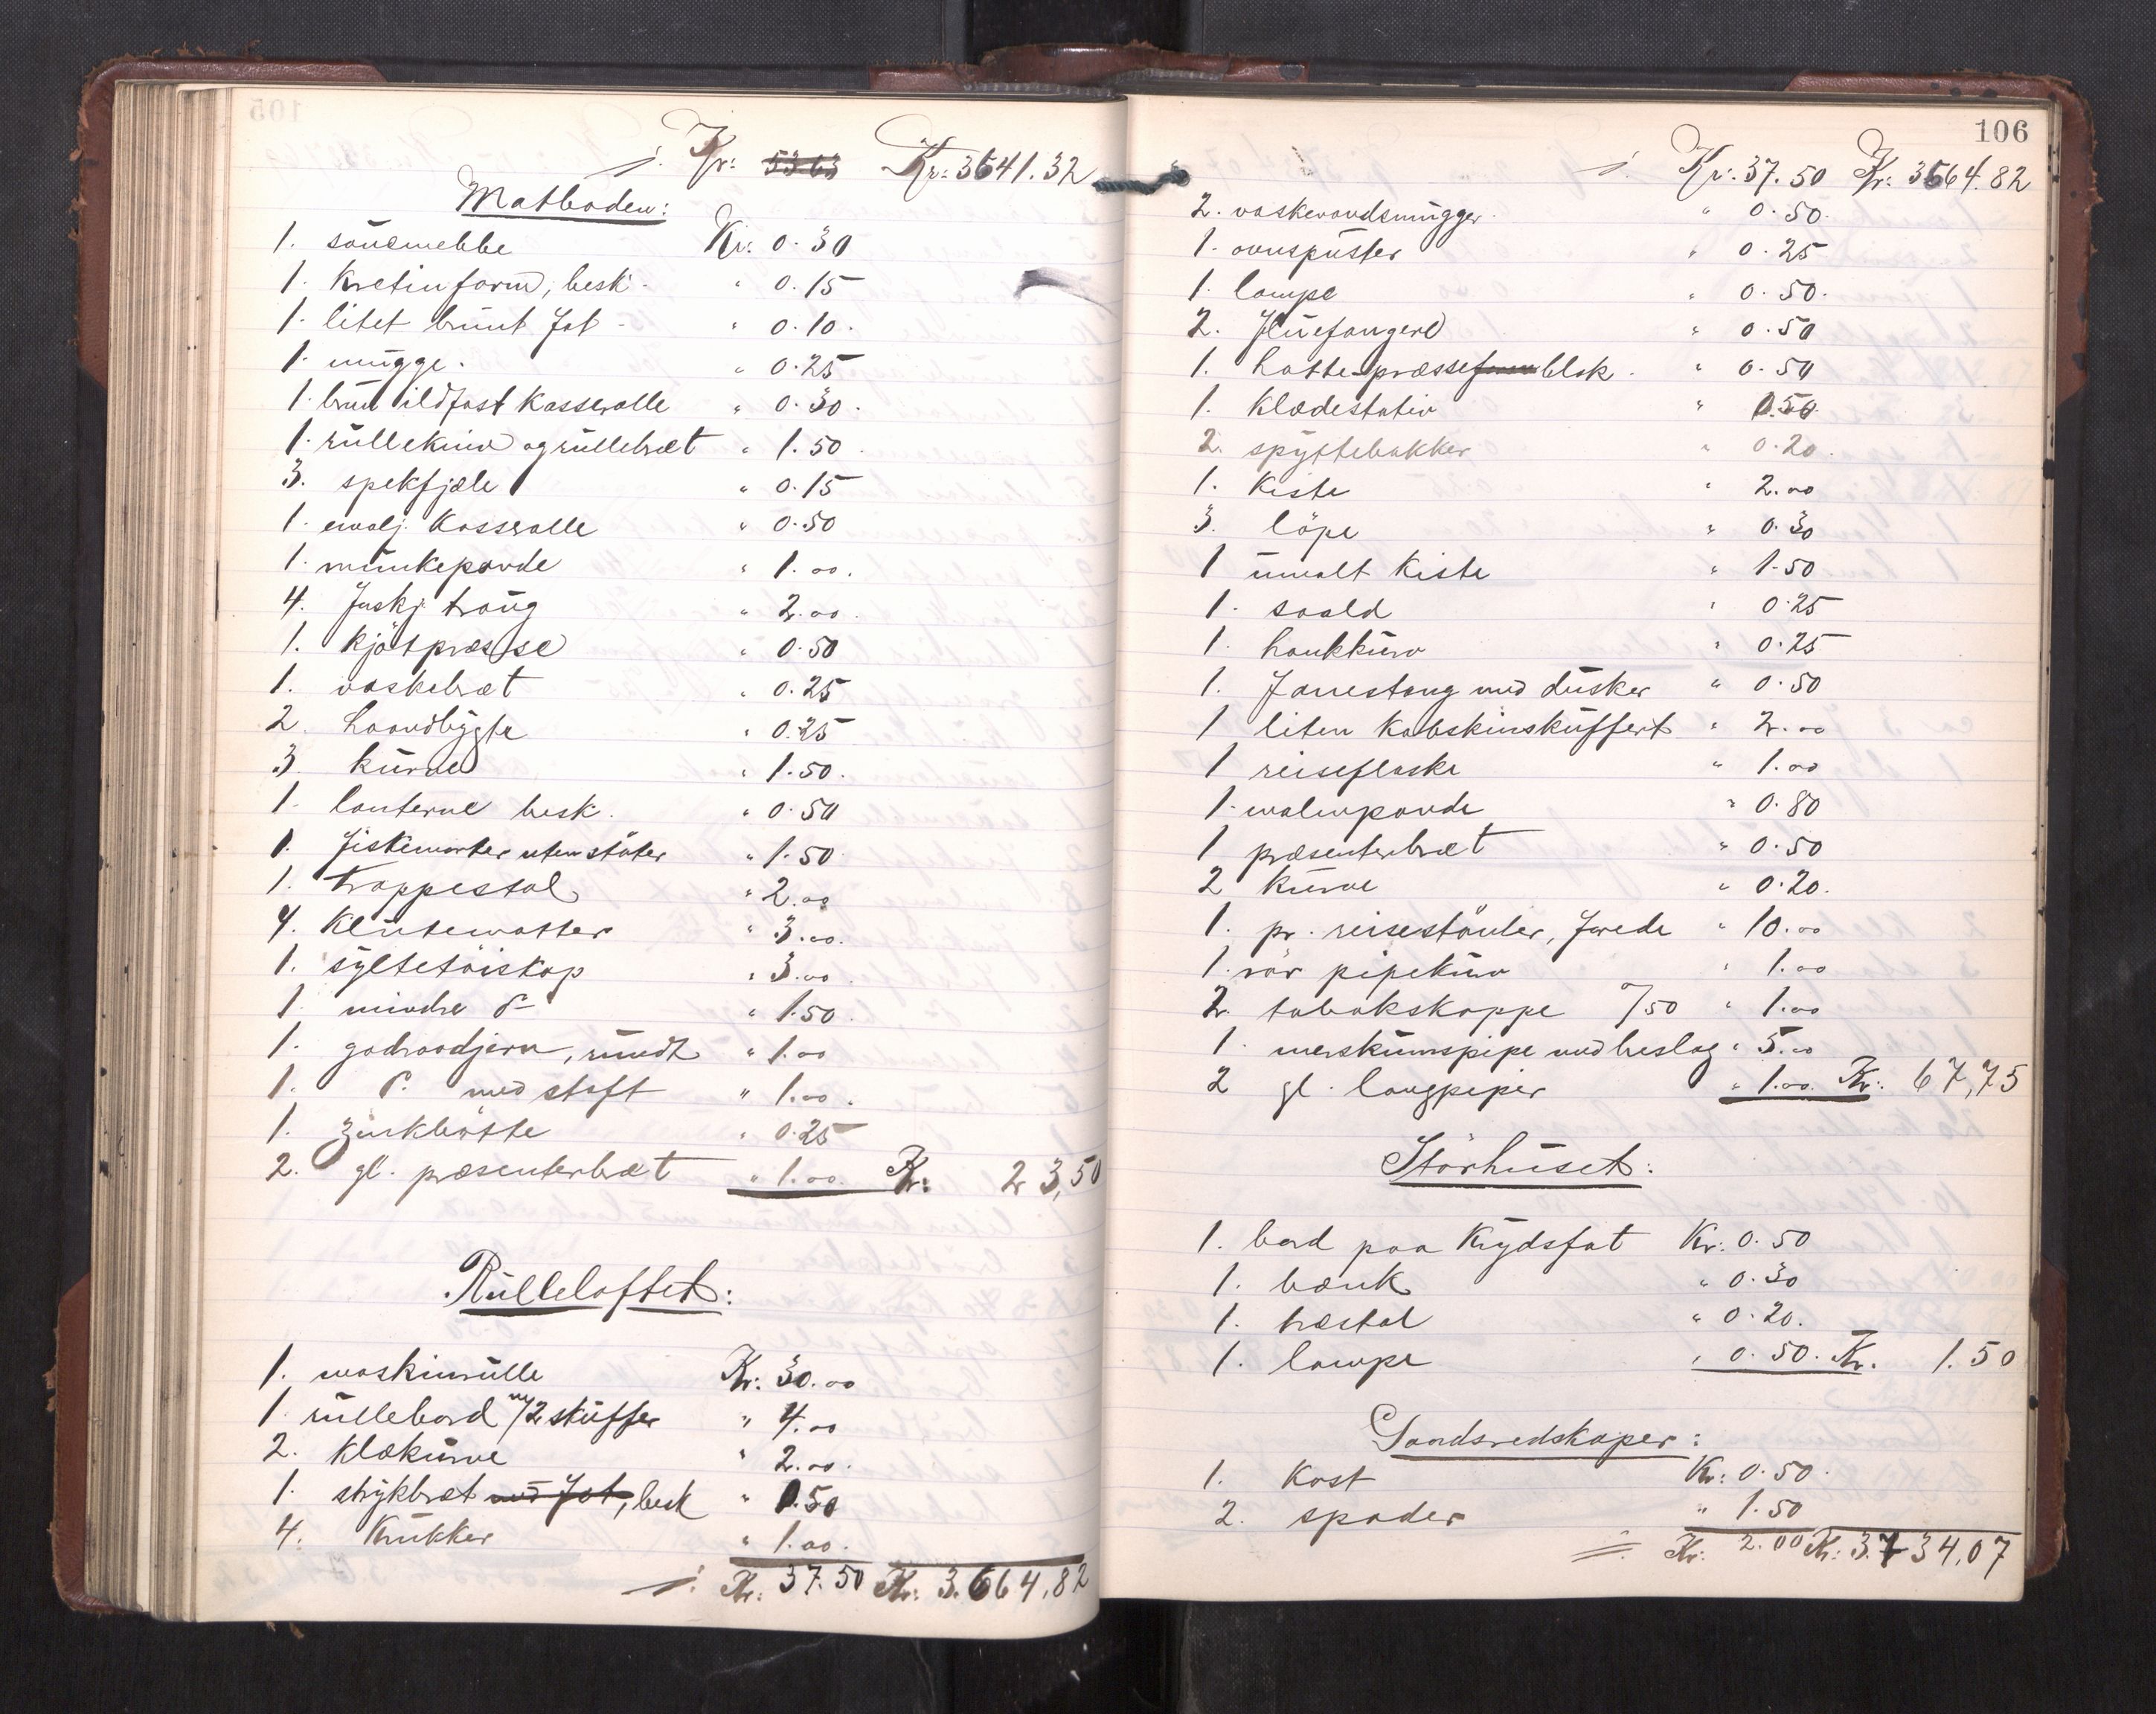 105
./. Kr: 5363 Kr: 3641.32
Matboden:
1. sausnebbe Kr: 0.30
1. Kretinform, besk. " 0.15
1. litet brunt fat " 0.10.
1. mugge. " 0.25
1. brun ildfast Kasserolle " 0.30.
1. rullekniv og rullebræt " 1.50.
3. spekfjæle " 0.15
1. emalj. Kasserolle " 0.50
1. munkepande " 1.00.
4. firskj. traug " 2.00.
1. Kjötpræsse " 0.50
1. vaskebræt " 0.25
2. haandbygte " 0.25
3. kurve " 1.50.
1. lanterne besk. " 0.50
1. fiskemorter uten stöter " 1.50.
1. trappestol " 2.00
4. Klutematter " 3.00.
1. syltetöiskap " 3.00.
1. mindre d° " 1.50.
1. godraadjern, rundt " 1.00
1. d°. med skaft " 1.00.
1. zinkbötte " 0.25
2. gl. præsenterbræt " 1.00. Kr: 23,50
Rulleloftet:
1. maskinrulle Kr: 30.00
1. rullebord m/2 skuffer " 4.00
2. Klækurve " 2.00.
1. strykbræt med fot, besk " 0.50
4. Krukker " 1.00.
./. Kr: 37.50 Kr: 3.664,82
106
./. Kr: 37.50 Kr: 3664.82
2. vaskevandsmugger " 0.50.
1. ovnspuster " 0.25
1. lampe " 0.50.
2. fluefangere " 0.50
1. hattepræsseformblok " 0.50
1. Klædestativ " 0.50.
2. spyttebakker " 0.20.
1. Kiste " 2.00
3. löpe " 0.30
1 umalt Kiste " 1.50
1. saald " 0.25
1. hankkurv " 0.25
1. fanestang med dusker " 0.50
1 liten Kobskinskuffert " 2.00
1 reiseflaske " 1.00
1. malmpande " 0.80
1 præsenterbræt " 0.50
2 Kurve " 0.20.
1. pr. reisestövler, forede " 10.00
1. rör pipekurv " 1.00
2. tobakskoppe a/50 " 1.00
1. merskumspipe med beslag " 5.00
2 gl. langpiper " 1.00. Kr: 67,75
Störhuset:
1. bord paa Krydsfot Kr: 0.50
1. bænk " 0.30
1. træstol " 0.20.
1. lampe " 0.50. Kr. 1.50
Gaardsredskaper:
1. Kost Kr: 0.50.
2. spader " 1.50
./. Kr: 2.00 Kr: 3.734,07